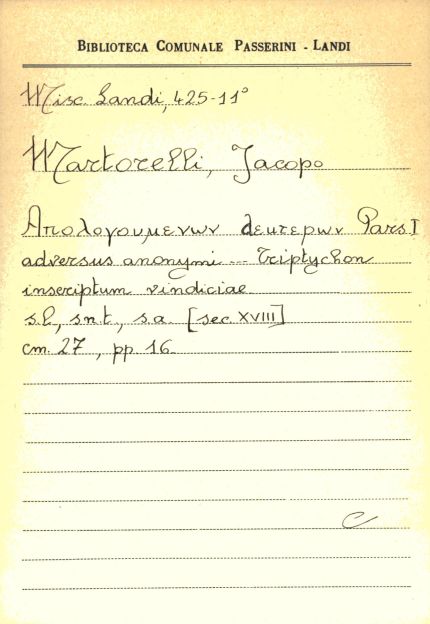 BIBLIOTECA COMUNALE PASSERINI - LANDI
Misc. Landi, 425-11°
Martorelli, Jacopo
Απολογουμενων δευτερων Pars I
adversus anonymi --- Triptychon
inscriptum vindiciae
s.l., s.n.t., s.a. [sec. XVIII]
cm. 27, pp. 16.
C